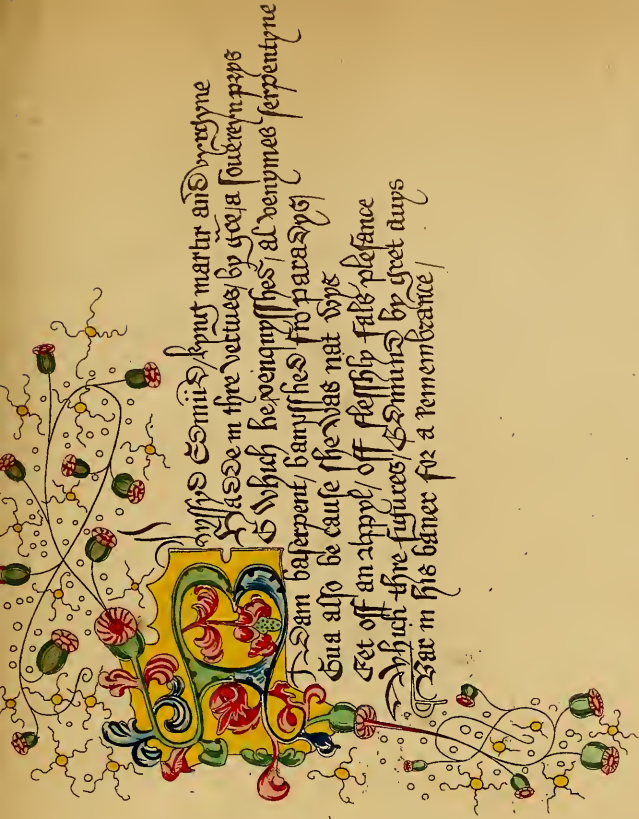 Blyssyd Edmūd kyng martir and vyrgyne
Hadde in thre vertues/ by grce/ a souereyn prys
Be Which he venquysshed/ al venymes serpentyne
Adam baserpent/ banysshed fro paradys/
Eua also be cause she was nat wys
Eet off an appyl/ off flesshly fals plesance
Which thre figures/ Edmund by gret auys
Bar in his baner for a remembrance/